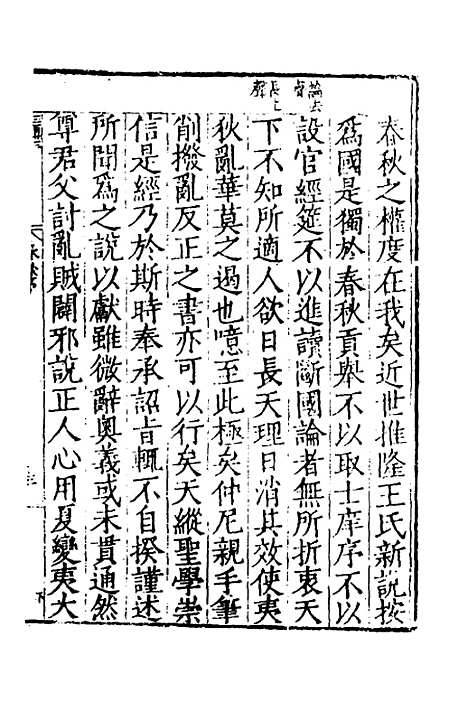 春秋之權度在我矣近世推隆王氏新說按
爲國是獨於春秋貢舉不以取士庠序不以
設官經筵不以進讀斷國論者無所折衷天
下不知所適人欲日長天理日消其效使夷
狄亂華莫之遏也噫至此極矣仲尼親手筆
削撥亂反正之書亦可以行矣天縱聖學崇
信是經乃於斯時奉承詔旨輒不自揆謹述
所聞爲之說以獻雖微辭奧義或未貫通然
尊君父討亂賊闢邪說正人心用夏變夷大